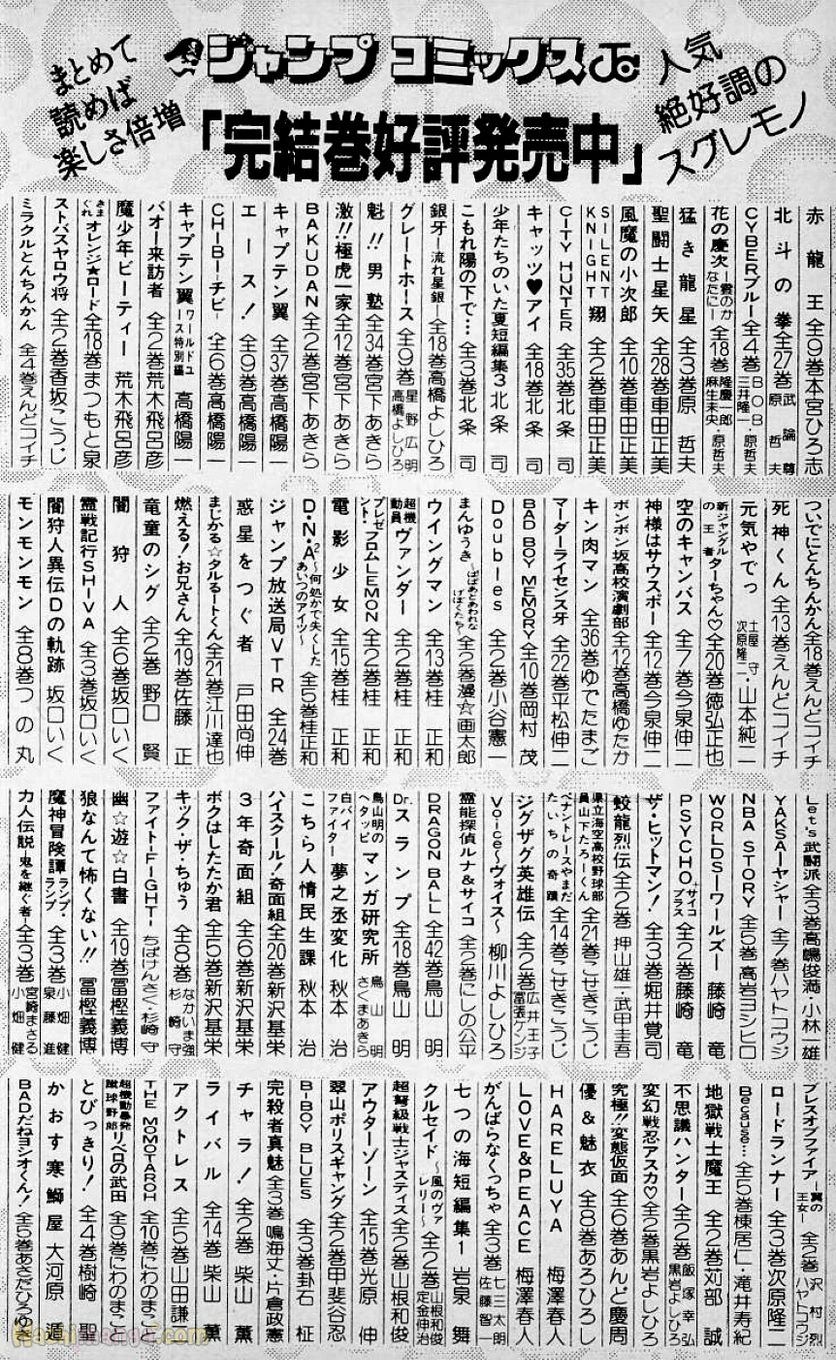 まとめて
読めば
楽しさ倍増
ジャンプ コミックス
人気
絶好調の
スグレモノ
「完結巻好評発売中」
赤龍王 全9巻 本宮ひろ志
北斗の拳 全27巻 武論尊 原哲夫
CYBERブルー 全4巻 BOB 三井隆一・原哲夫
花の慶次―雲のかなたに― 全18巻 隆慶一郎 麻生未央・原哲夫
猛き龍星 全3巻 原哲夫
聖闘士星矢 全28巻 車田正美
風魔の小次郎 全10巻 車田正美
SILENT KNIGHT 翔 全2巻 車田正美
CITY HUNTER 全35巻 北条司
キャッツ♥アイ 全18巻 北条司
少年たちのいた夏 短編集3 北条司
こもれ陽の下で… 全3巻 北条司
銀牙―流れ星銀― 全18巻 高橋よしひろ
グレートホース 全9巻 星野広明 高橋よしひろ
魁!!男塾 全34巻 宮下あきら
激!!極虎一家 全12巻 宮下あきら
BAKUDAN 全2巻 宮下あきら
キャプテン翼 全37巻 高橋陽一
エース! 全9巻 高橋陽一
CHIBI―チビ― 全6巻 高橋陽一
キャプテン翼 ワールドユース特別編 高橋陽一
バオー来訪者 全2巻 荒木飛呂彦
魔少年ビーティー 荒木飛呂彦
きまぐれオレンジ★ロード 全18巻 まつもと泉
ストバスヤロウ将 全2巻 香坂こうじ
ミラクルとんちんかん 全4巻 えんどコイチ
ついでにとんちんかん 全18巻 えんどコイチ
死神くん 全13巻 えんどコイチ
元気やでっ 土屋守・次原隆二・山本純二
新ジャングルの王者ターちゃん♡ 全20巻 徳弘正也
空のキャンバス 全7巻 今泉伸二
神様はサウスポー 全12巻 今泉伸二
ボンボン坂高校演劇部 全12巻 高橋ゆたか
キン肉マン 全36巻 ゆでたまご
マーダーライセンス牙 全22巻 平松伸二
BAD BOY MEMORY 全10巻 岡村茂
Doubles 全2巻 小谷憲一
まんゆうき～ばばあとあわれなげぼくたち～ 全2巻 漫☆画太郎
ウイングマン 全13巻 桂正和
超機動員ヴァンダー 全2巻 桂正和
プレゼント・フロムLEMON 全2巻 桂正和
電影少女 全15巻 桂正和
D・N・A²～何処かで失くしたあいつのアイツ～ 全5巻 桂正和
ジャンプ放送局VTR 全24巻
惑星をつぐ者 戸田尚伸
まじかる☆タルるートくん 全21巻 江川達也
燃える!お兄さん 全19巻 佐藤正
竜童のシグ 全2巻 野口賢
闇狩人 全6巻 坂口いく
霊戦記行SHIVA 全3巻 坂口いく
闇狩人異伝Dの軌跡 坂口いく
モンモンモン 全8巻 つの丸
Let's武闘派 全3巻 高嶋俊満・小林一雄
YAKSA―ヤシャ― 全1巻 ハヤトコウジ
NBA STORY 全5巻 高岩ヨシヒロ
WORLDS―ワールズ― 藤崎竜
PSYCHO+ サイコプラス 全2巻 藤崎竜
ザ・ヒットマン! 全3巻 堀井覚司
蛟龍烈伝 全2巻 押山雄一・武田圭吾
県立海空高校野球部員山下たろーくん 全21巻 こせきこうじ
ペナントレースやまだたいちの奇蹟 全14巻 こせきこうじ
ジグザグ英雄伝 全2巻 広井王子 富張ケンジ
Voice～ヴォイス～ 柳川よしひろ
霊能探偵ルナ&サイコ 全2巻 にしの公平
DRAGON BALL 全42巻 鳥山明
Dr.スランプ 全18巻 鳥山明
鳥山明のヘタッピマンガ研究所 鳥山明 さくまあきら
こちら人情民生課 秋本治
白バイファイター夢之丞変化 秋本治
ハイスクール!奇面組 全20巻 新沢基栄
3年奇面組 全6巻 新沢基栄
ボクはしたたか君 全5巻 新沢基栄
キック・ザ・ちゅう 全8巻 なかいま強
ファイト―FIGHT― ちばけんさく・杉崎守
幽☆遊☆白書 全19巻 冨樫義博
狼なんて怖くない!! 冨樫義博
魔神冒険譚ランプ・ランプ 全3巻 泉藤進 小畑健
力人伝説―鬼を継ぐ者― 全3巻 宮崎まさる 小畑健
ブレスオブファイア―翼の王女― 全2巻 沢村烈 ハヤトコウジ
ロードランナー 全3巻 次原隆二
Because… 全5巻 棟居仁・滝井寿紀
地獄戦士魔王 全2巻 苅部誠
不思議ハンター 全2巻 飯塚幸弘 黒岩よしひろ
変幻戦忍アスカ♡ 全2巻 黒岩よしひろ
究極!!変態仮面 全6巻 あんど慶周
優&魅衣 全8巻 あろひろし
HARELUYA 梅澤春人
LOVE&PEACE 梅澤春人
がんばらなくっちゃ 全3巻 七三太朗 佐藤智一
七つの海 短編集1 岩泉舞
クルセイド～風のヴァレリー～ 全2巻 山根和俊 定金伸治
超弩級戦士ジャスティス 全2巻 山根和俊
アウターゾーン 全15巻 光原伸
翠山ポリスギャング 全2巻 甲斐谷忍
B-BOY BLUES 全3巻 卦石柾
完殺者真魅 全3巻 鳴海丈・片倉政憲
チャラ! 全2巻 柴山薫
ライバル 全14巻 柴山薫
アクトレス 全5巻 山田謙二
THE MOMOTAROH 全10巻 にわのまこと
超機動暴発蹴球野郎リベロの武田 全9巻 にわのまこと
とびっきり! 全4巻 樹崎聖
かおす寒鰤屋 大河原遁
BADだねヨシオくん! 全5巻 あさだひろゆき